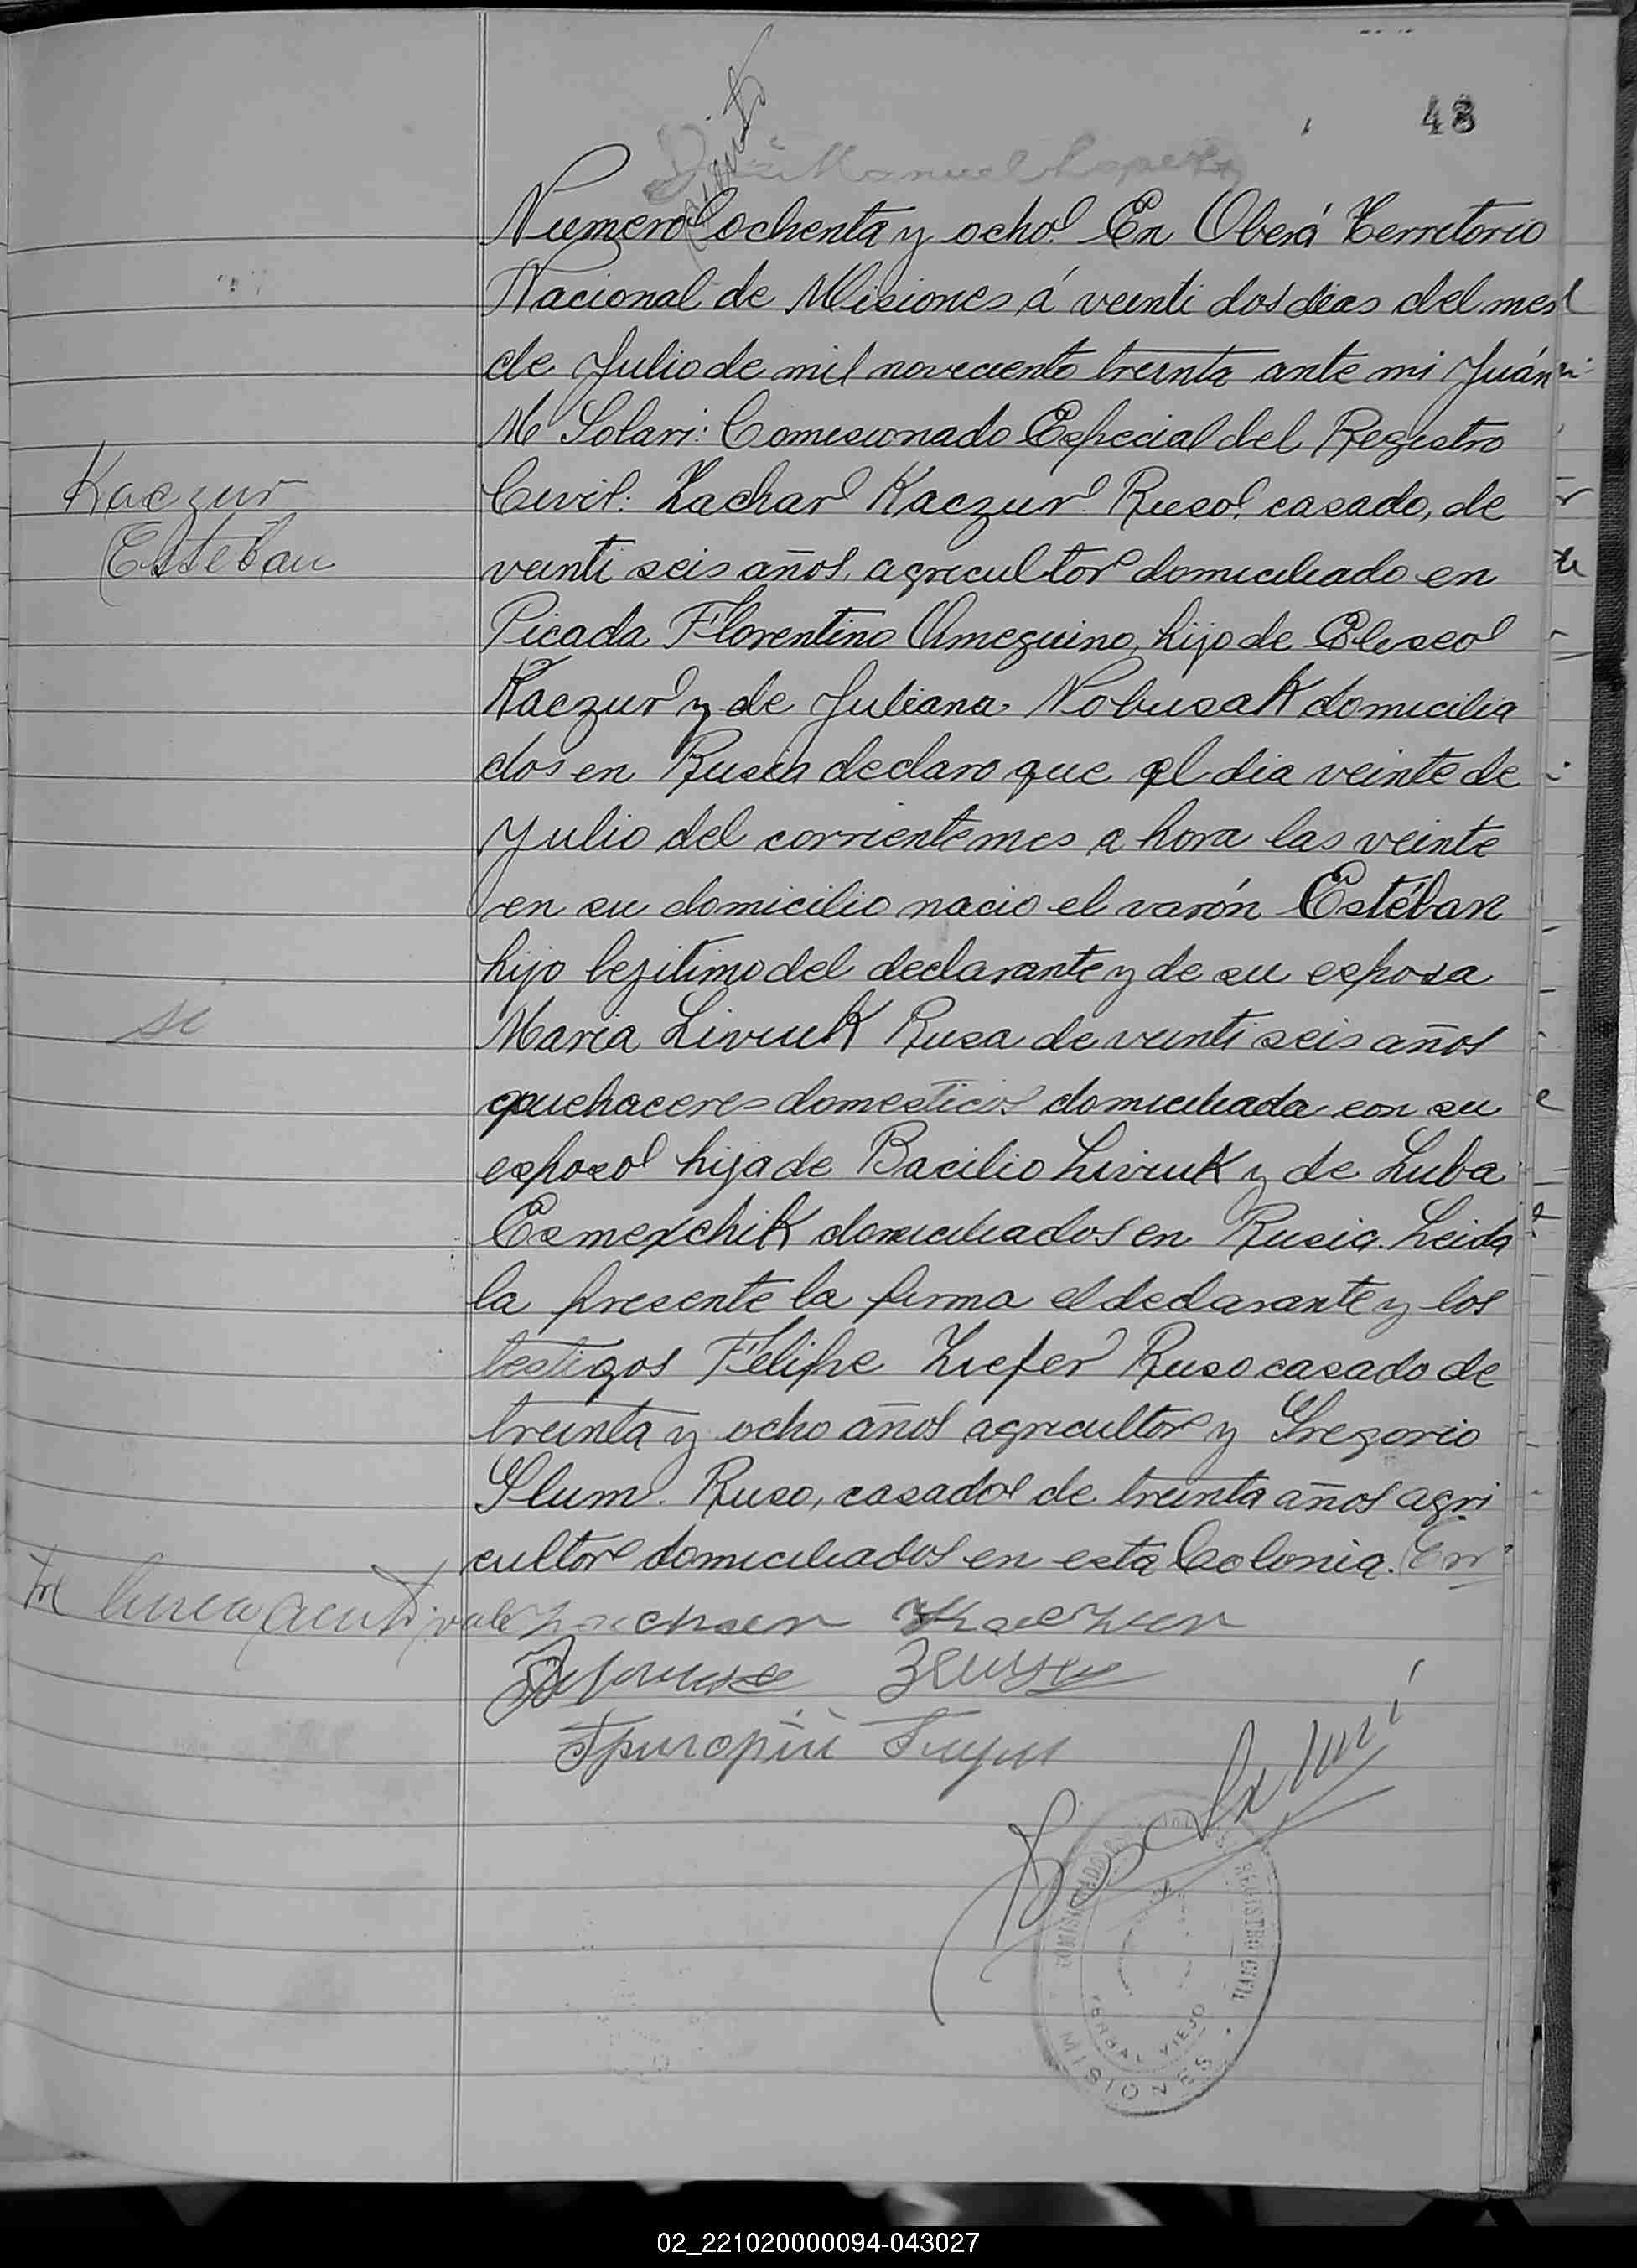 48
ciento
José Manuel Lopez
Numero ochenta y ocho. En Oberá Territorio
Nacional de Misiones á veinti dos dias del mes
de Julio de mil noveciento treinta ante mi Juán
M Solari: Comisionado Especial del Registro
Civil: Zachar Kaczur. Ruso. casado, de
veinti seis años, agricultor domiciliado en
Picada Florentino Ameguino, hijo de Eliseo
Kaczur y de Juliana Nobusak domicilia
dos en Rusia declaro que el dia veinte de
Julio del corriente mes a hora las veinte
en su domicilio nacio el varón Estéban
hijo legitimo del declarante y de su esposa
Maria Liviuk Rusa de veinti seis años
quehaceres domesticos domiciliada con su
esposo hija de Bacilio Liviuk y de Luba
Esmexchik domiciliados en Rusia. Leida
la presente la firma el declarante y los
testigos Felipe Ziefer Ruso casado de
treinta y ocho años agricultor y Gregorio
Glum. Ruso, casado de treinta años agri
cultor domiciliados en esta Colonia. En
tre linea ciento vale
Kaczur
Esteban
si
Григорій Глум
COMISIONADO REGISTRO CIVIL
YERBAL VIEJO
MISIONES
02_221020000094-043027